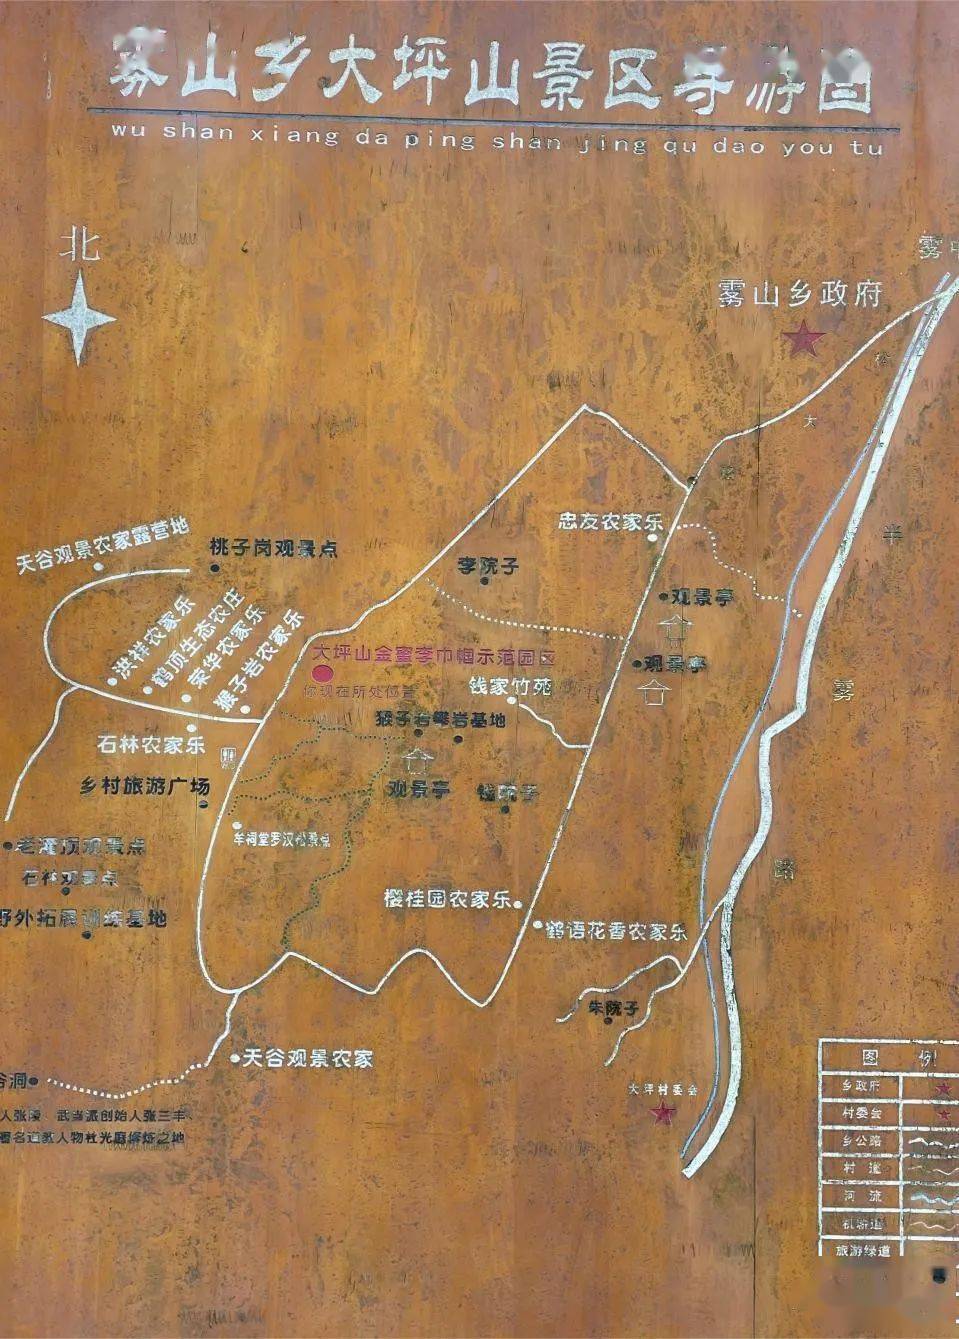 雾山乡大坪山景区导游图
wu shan xiang da ping shan jing qu dao you tu
北
雾中
雾山乡政府
大
忠友农家乐
天谷观景农家露营地
桃子岗观景点
李院子
半
观景亭
洪祥农家乐
鹤顶生态农庄
荣华农家乐
猴子岩农家乐
大坪山金蜜李巾帼示范园区
观景亭
你现在所处位置
钱家竹苑
雾
猴子岩攀岩基地
石林农家乐
乡村旅游广场
观景亭
钱院子
牟祠堂罗汉松景点
老灌顶观景点
路
石林观景点
樱桂园农家乐
野外拓展训练基地
鹤语花香农家乐
朱院子
天谷观景农家
谷洞
大坪村委会
人张陵 武当派创始人张三丰、
著名道教人物杜光庭修炼之地
图 例
乡政府
村委会
乡公路
村 道
河 流
机耕道
旅游绿道